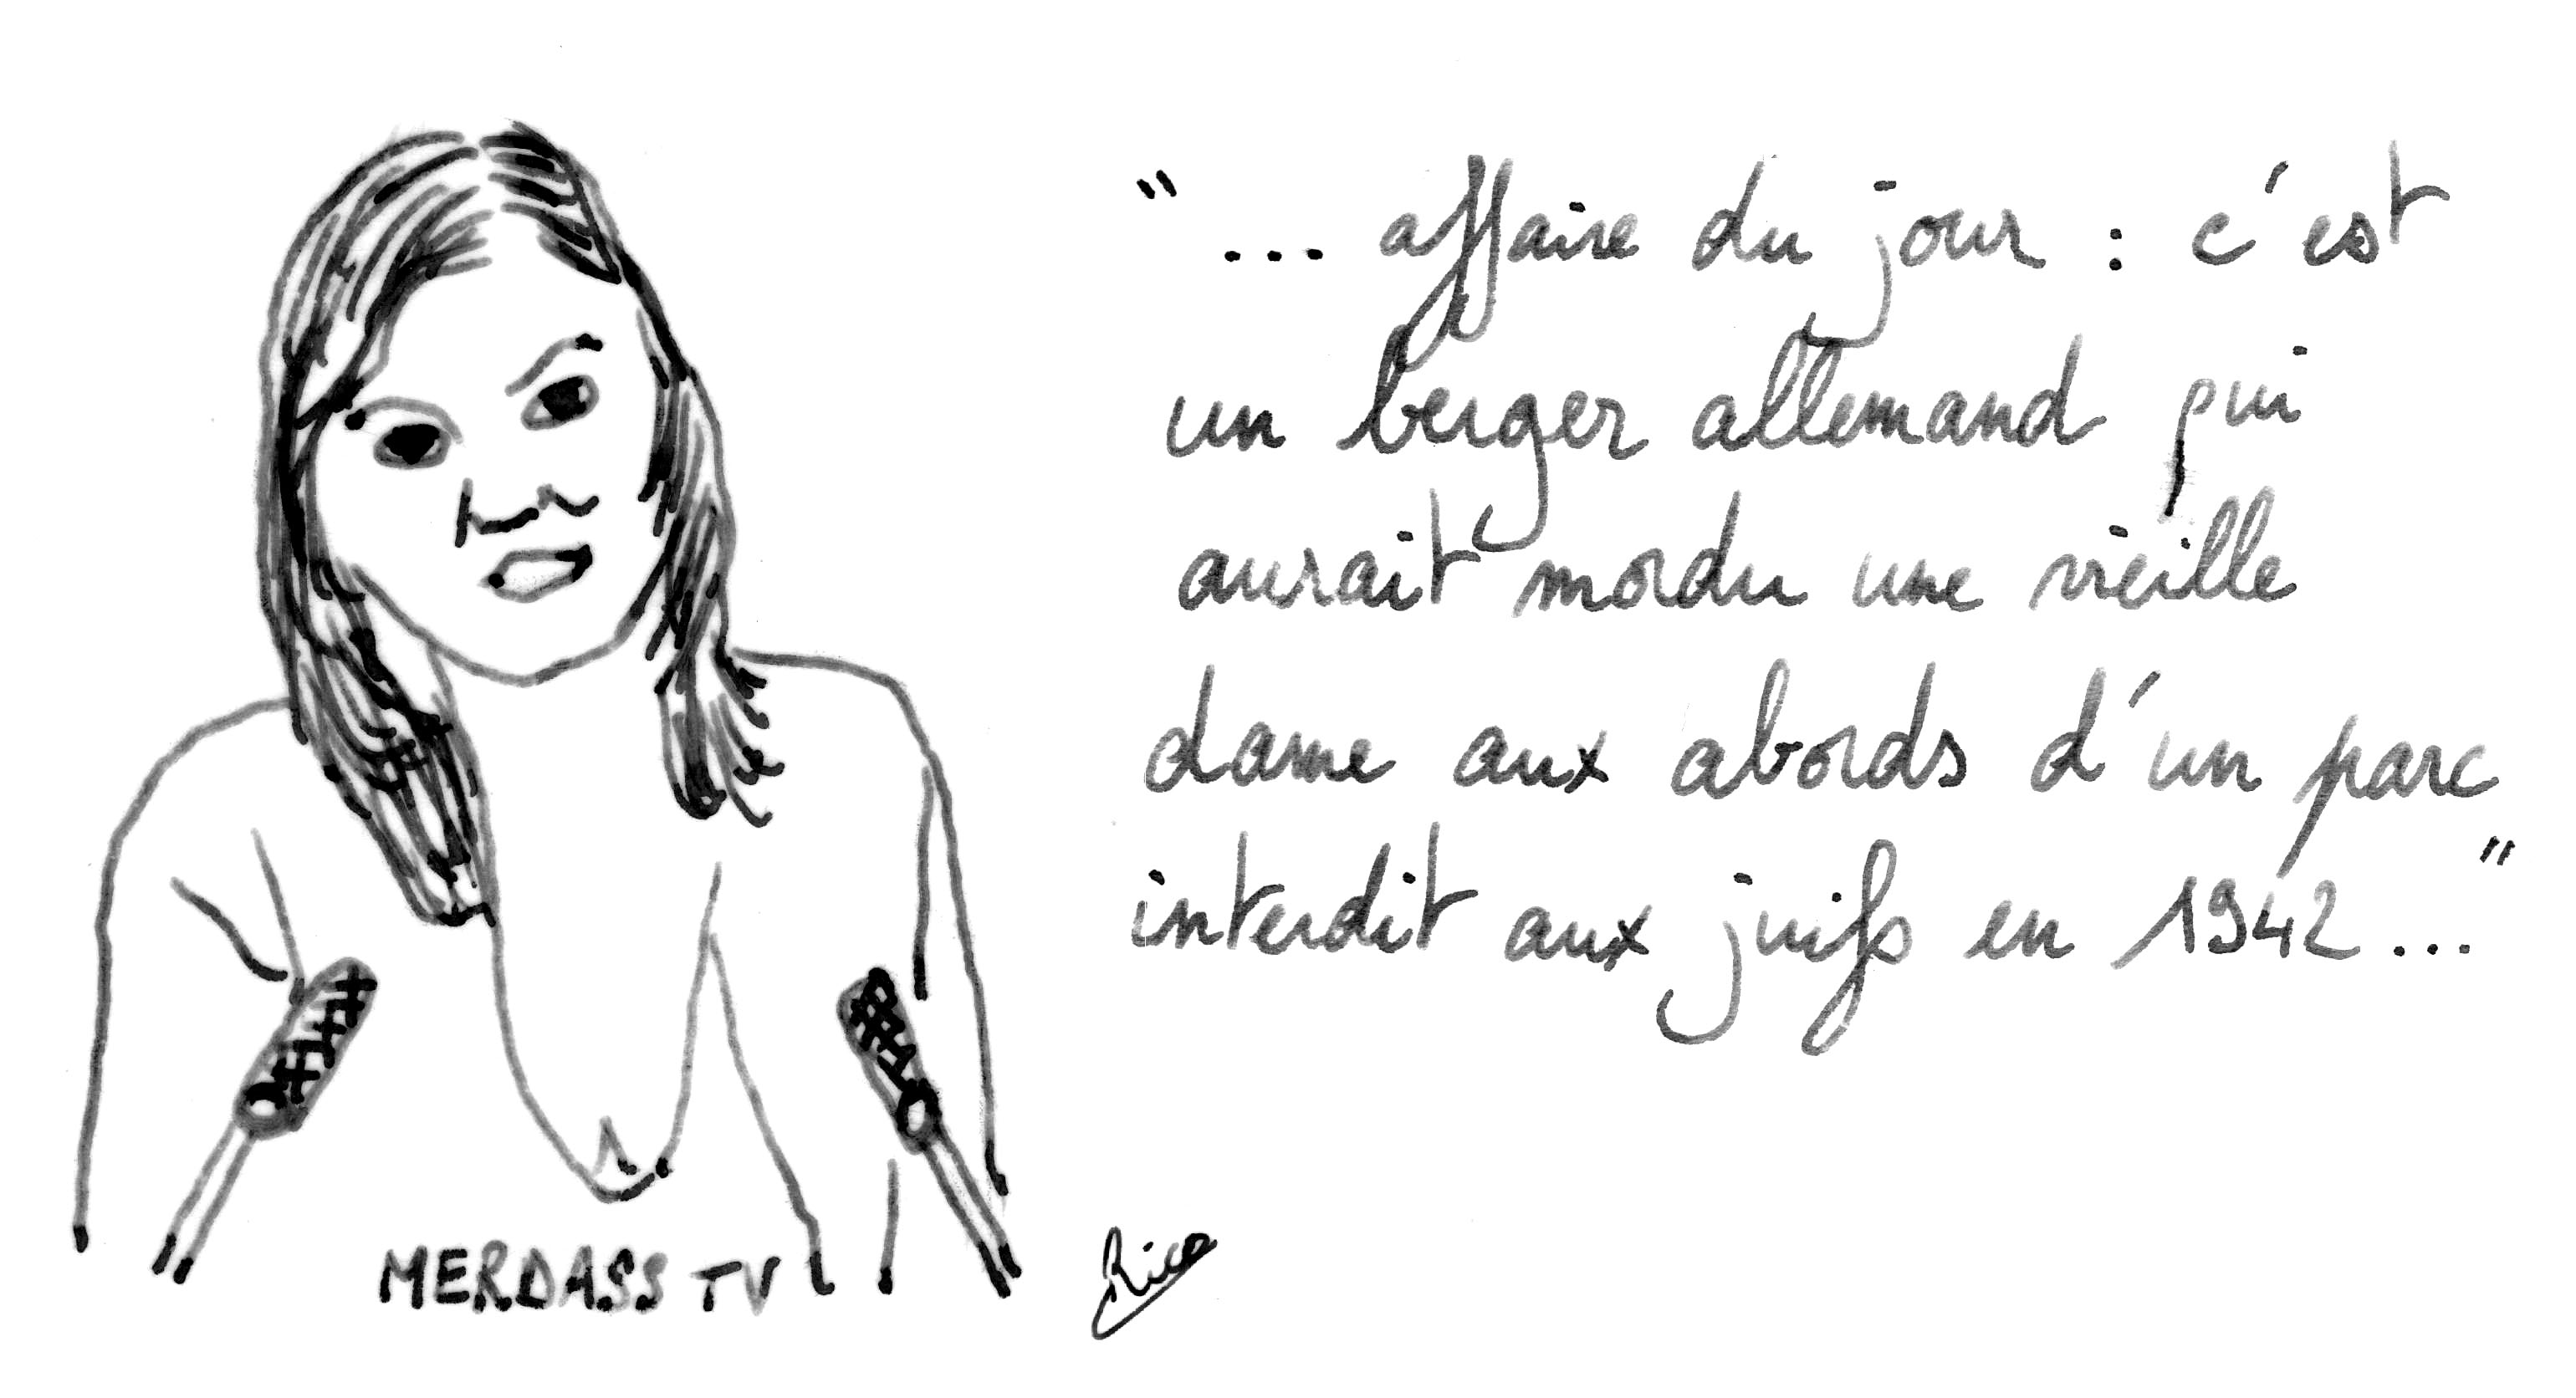 "... affaire du jour : c'est
un berger allemand qui
aurait mordu une vieille
dame aux abords d'un parc
interdit aux juifs en 1942..."
MERDASS TV
Rico